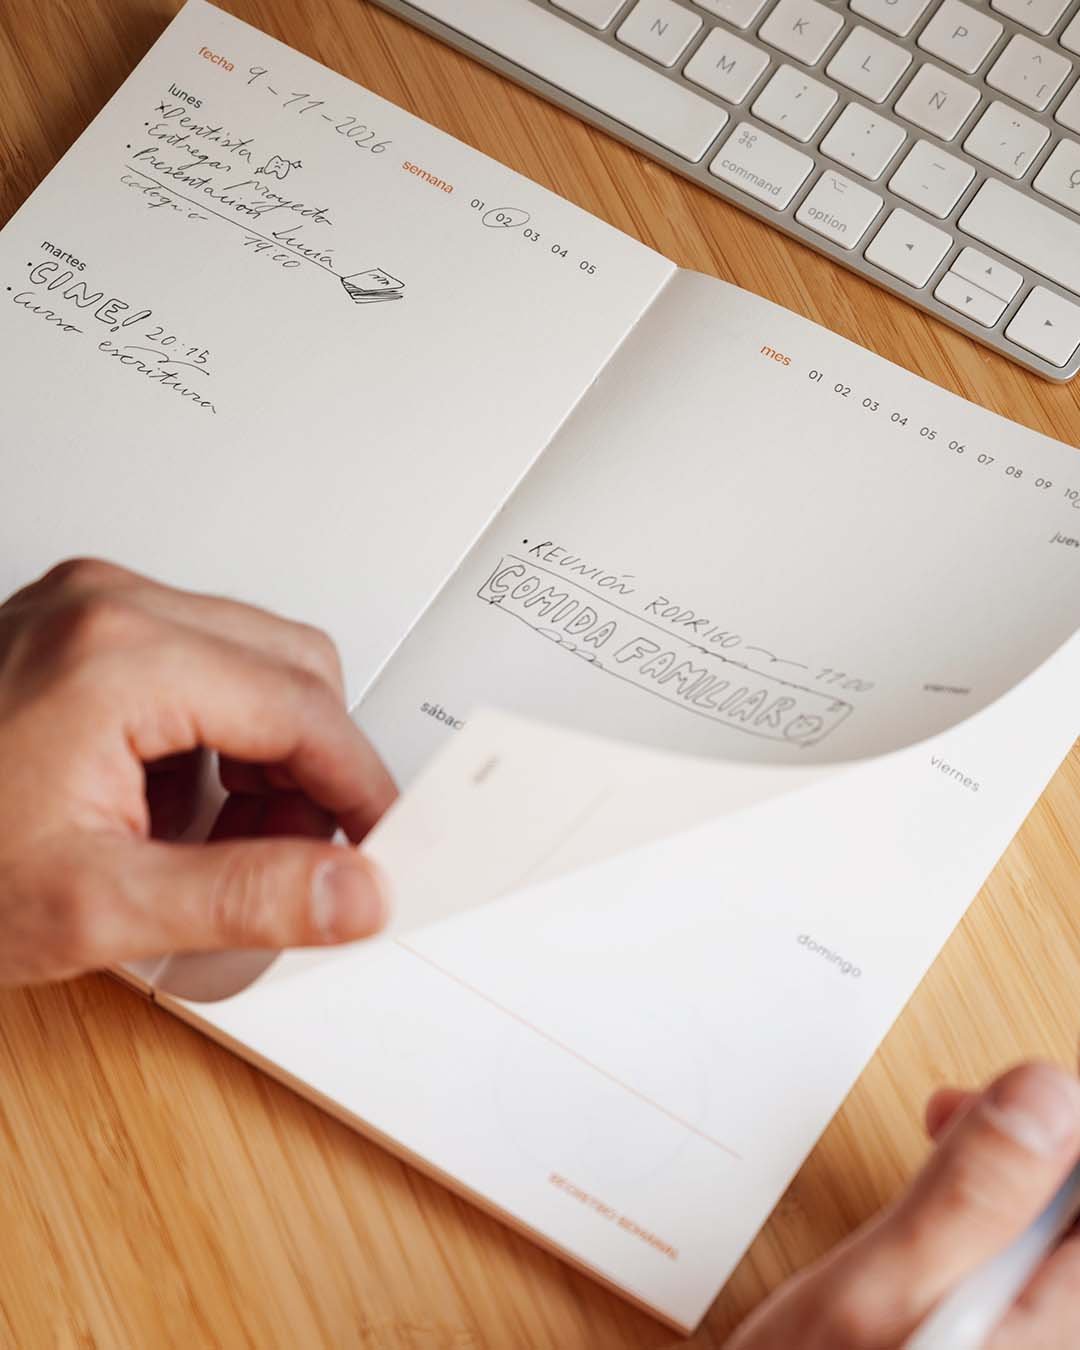 fecha 9-11-2026
semana 01 02 03 04 05
lunes
xDentista
·Entregar proyecto
·Presentación Lucía
19:00
martes
·CINE! 20:15
·Curso escritura
mes 01 02 03 04 05 06 07 08 09 10
juev
·REUNIÓN RODRIGO 11:00
COMIDA FAMILIAR
viernes
sábad
viernes
domingo
N
K
P
M
L
^ [
; ,
Ñ
: .
¨ {
Ç
_ -
⌘
command
⌥
option
◀
▲
▼
▶